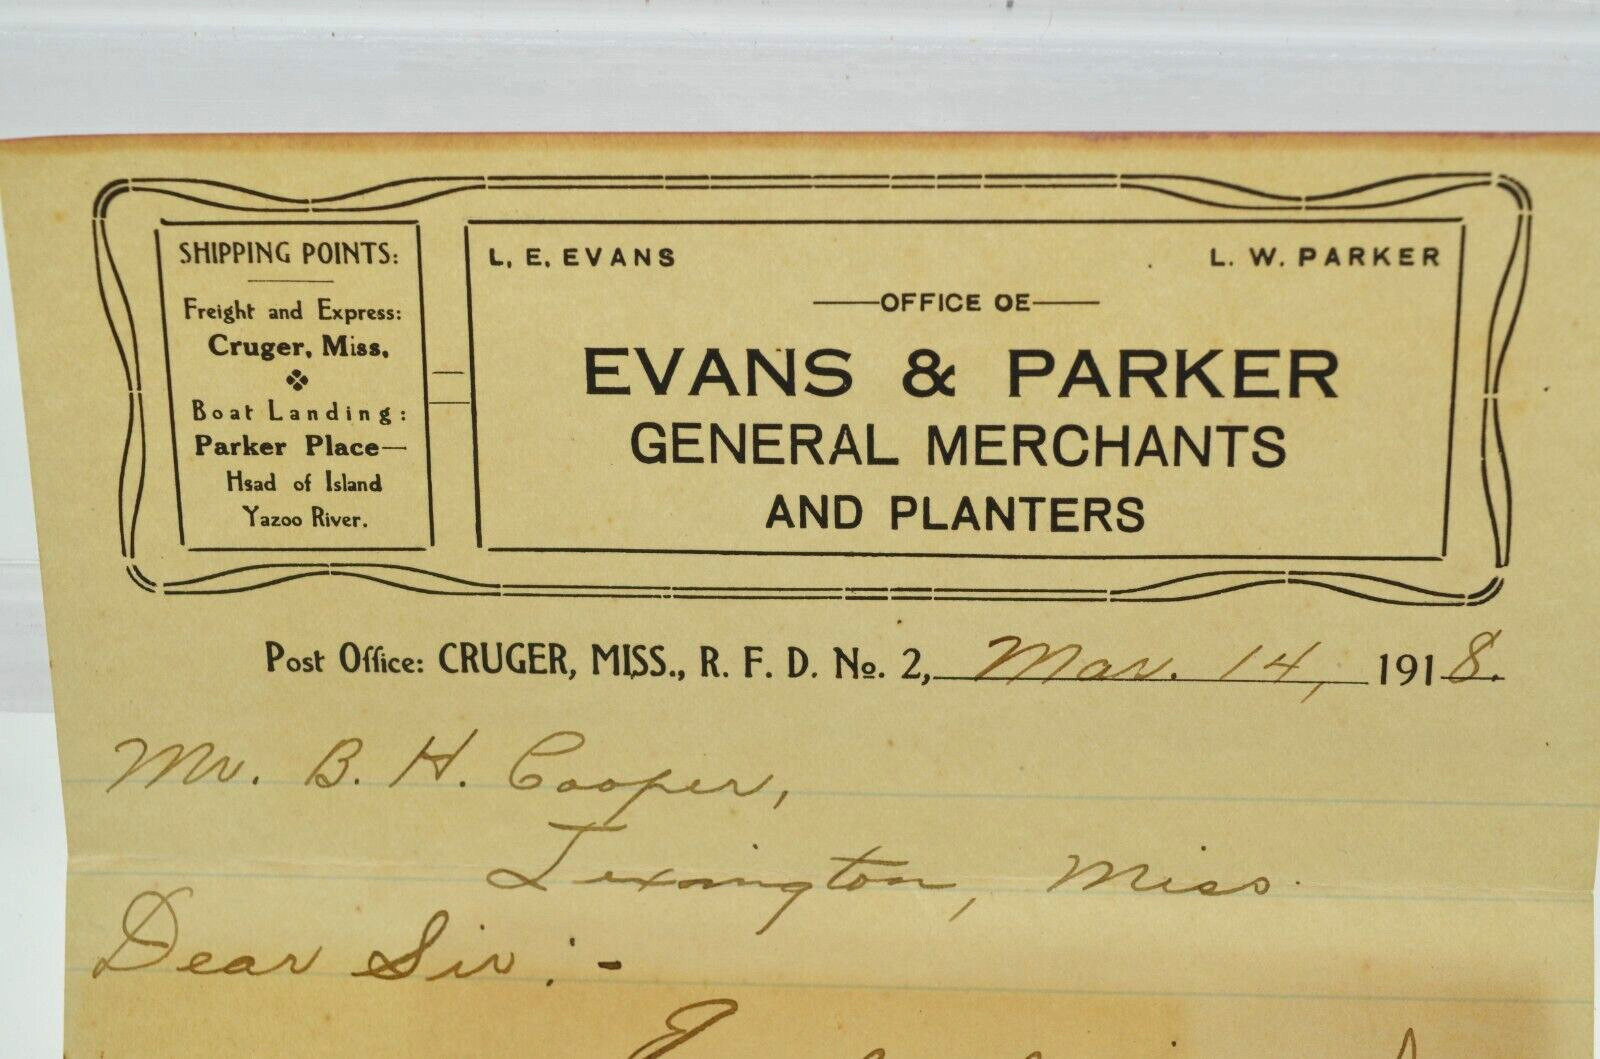 SHIPPING POINTS:
Freight and Express:
Cruger, Miss.
Boat Landing:
Parker Place—
Hsad of Island
Yazoo River.
L. E. EVANS
L. W. PARKER
OFFICE OE
EVANS & PARKER
GENERAL MERCHANTS
AND PLANTERS
Post Office: CRUGER, MISS., R. F. D. No. 2, Mar. 14, 1918.
Mr. B. H. Cooper,
Lexington, Miss.
Dear Sir:-